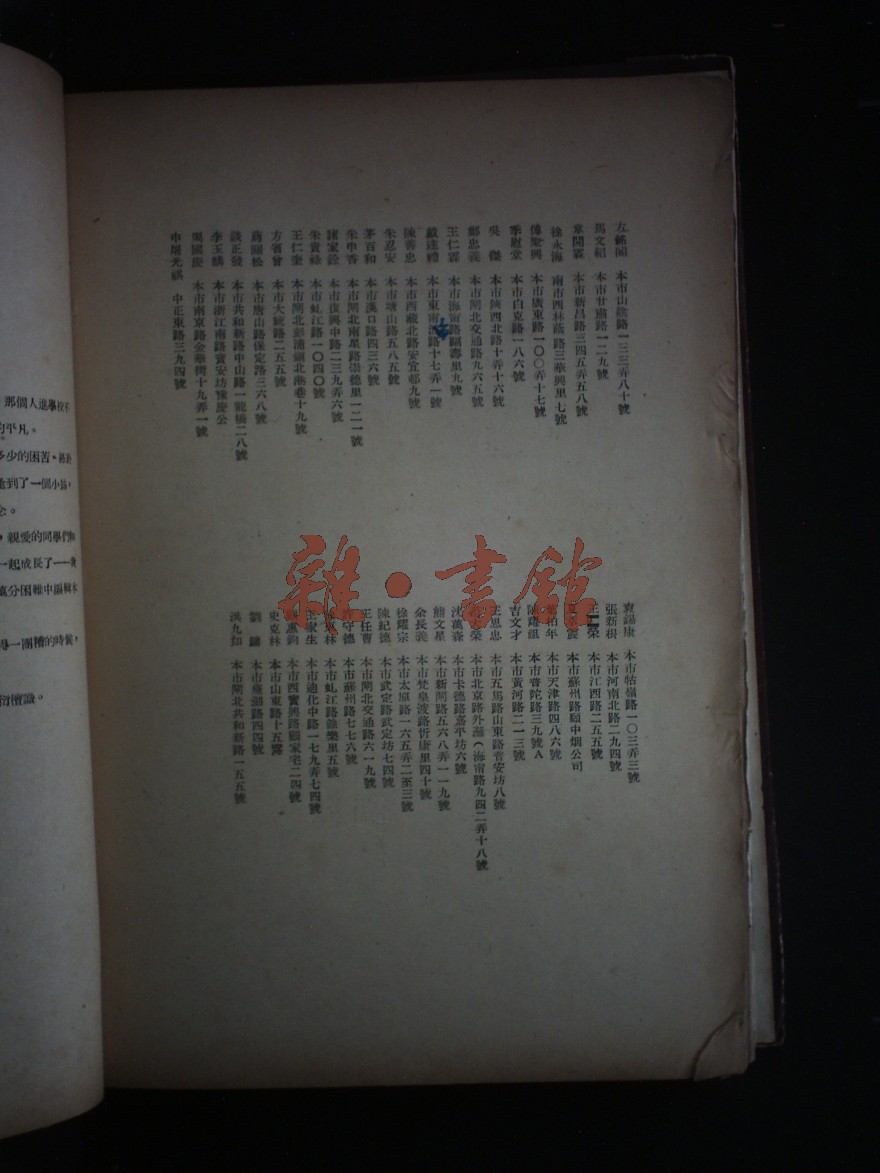 左銘 本市山陰路一三三弄八十號
馬文紹 本市甘肅路一二九號
章開霖 本市新昌路三四五弄五八號
徐永海 南市西林蔭路三華興里七號
傅榮興 本市廣東路一〇〇弄十七號
季慰堂 本市白克路一八六號
吳傑 本市陝西北路十弄十六號
鄭忠義 本市閘北交通路九六五號
王仁霖 本市海甯路顧壽里九號
戴達禮 本市東 路十七弄一號
陳善忠 本市西藏北路安宜邨九號
朱忍安 本市塘山路五八五號
茅百和 本市漢口路四三六號
朱申香 本市閘北南星路崇德里一二一號
諸家銓 本市復興中路二三九弄六號
朱貴祿 本市虬江路一〇四〇號
王仁奎 本市閘北彭浦鎮北港巷十九號
方省曾 本市大統路二五五號
蔣頤松 本市唐山路保定路三六八號
談正發 本市共和新路中山路一龍橋二八號
李玉麟 本市浙江南路寶安坊豫慶公
馬國慶 本市南京路金華街十九弄一號
申屠光祺 中正東路三九四號
袁錫康 本市牯嶺路一〇三弄三號
張新根 本市河南北路二九四號
王 榮 本市江西路二五五號
震 本市蘇州路頤中烟公司
柏年 本市天津路四八六號
陳 組 本市普陀路三九號A
吉文才 本市黃河路二一三號
王思忠 本市五馬路山東路普安坊八號
榮 本市北京路外灘(海甯路九四二弄十八號
沈萬森 本市卡德路嘉平坊六號
熊文星 本市新閘路五六八弄一一九號
余長義 本市梵皇渡路忻康里四十號
徐耀宗 本市太原路一六五弄二至三號
陳紀德 本市武定路武定坊七四號
王任曹 本市閘北交通路六一九號
守德 本市蘇州路七七六號
林 本市虬江路餘樂里五號
王家生 本市迪化中路一七九弄七四號
惠鈞 本市西寶興路顧家宅二四號
史克林 本市山東路十五號
劉 本市蕪湖路四四號
洪九如 本市閘北共和新路一五五號
那個人進學校不
的平凡。
多少的困苦、
到了一個小
念。
，親愛的同學們
一起成長了——
萬分困難中編輯本
一團糟的時候，
衍檀識。
雜·書館